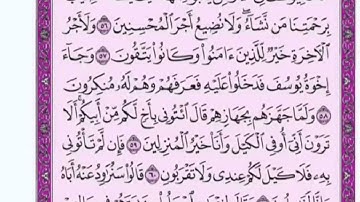 بِرَحْمَتِنَا مَن نَّشَآءُ وَلَا نُضِيعُ أَجْرَ ٱلْمُحْسِنِينَ ٥٦ وَلَأَجْرُ
ٱلْءَاخِرَةِ خَيْرٌ لِّلَّذِينَ ءَامَنُوا۟ وَكَانُوا۟ يَتَّقُونَ ٥٧ وَجَآءَ
إِخْوَةُ يُوسُفَ فَدَخَلُوا۟ عَلَيْهِ فَعَرَفَهُمْ وَهُمْ لَهُۥ مُنكِرُونَ
٥٨ وَلَمَّا جَهَّزَهُم بِجَهَازِهِمْ قَالَ ٱئْتُونِى بِأَخٍ لَّكُم مِّنْ أَبِيكُمْ أَلَا
تَرَوْنَ أَنِّىٓ أُوفِى ٱلْكَيْلَ وَأَنَا۠ خَيْرُ ٱلْمُنزِلِينَ ٥٩ فَإِن لَّمْ تَأْتُونِى
بِهِۦ فَلَا كَيْلَ لَكُمْ عِندِى وَلَا تَقْرَبُونِ ٦٠ قَالُوا۟ سَنُرَٰوِدُ عَنْهُ أَبَاهُ